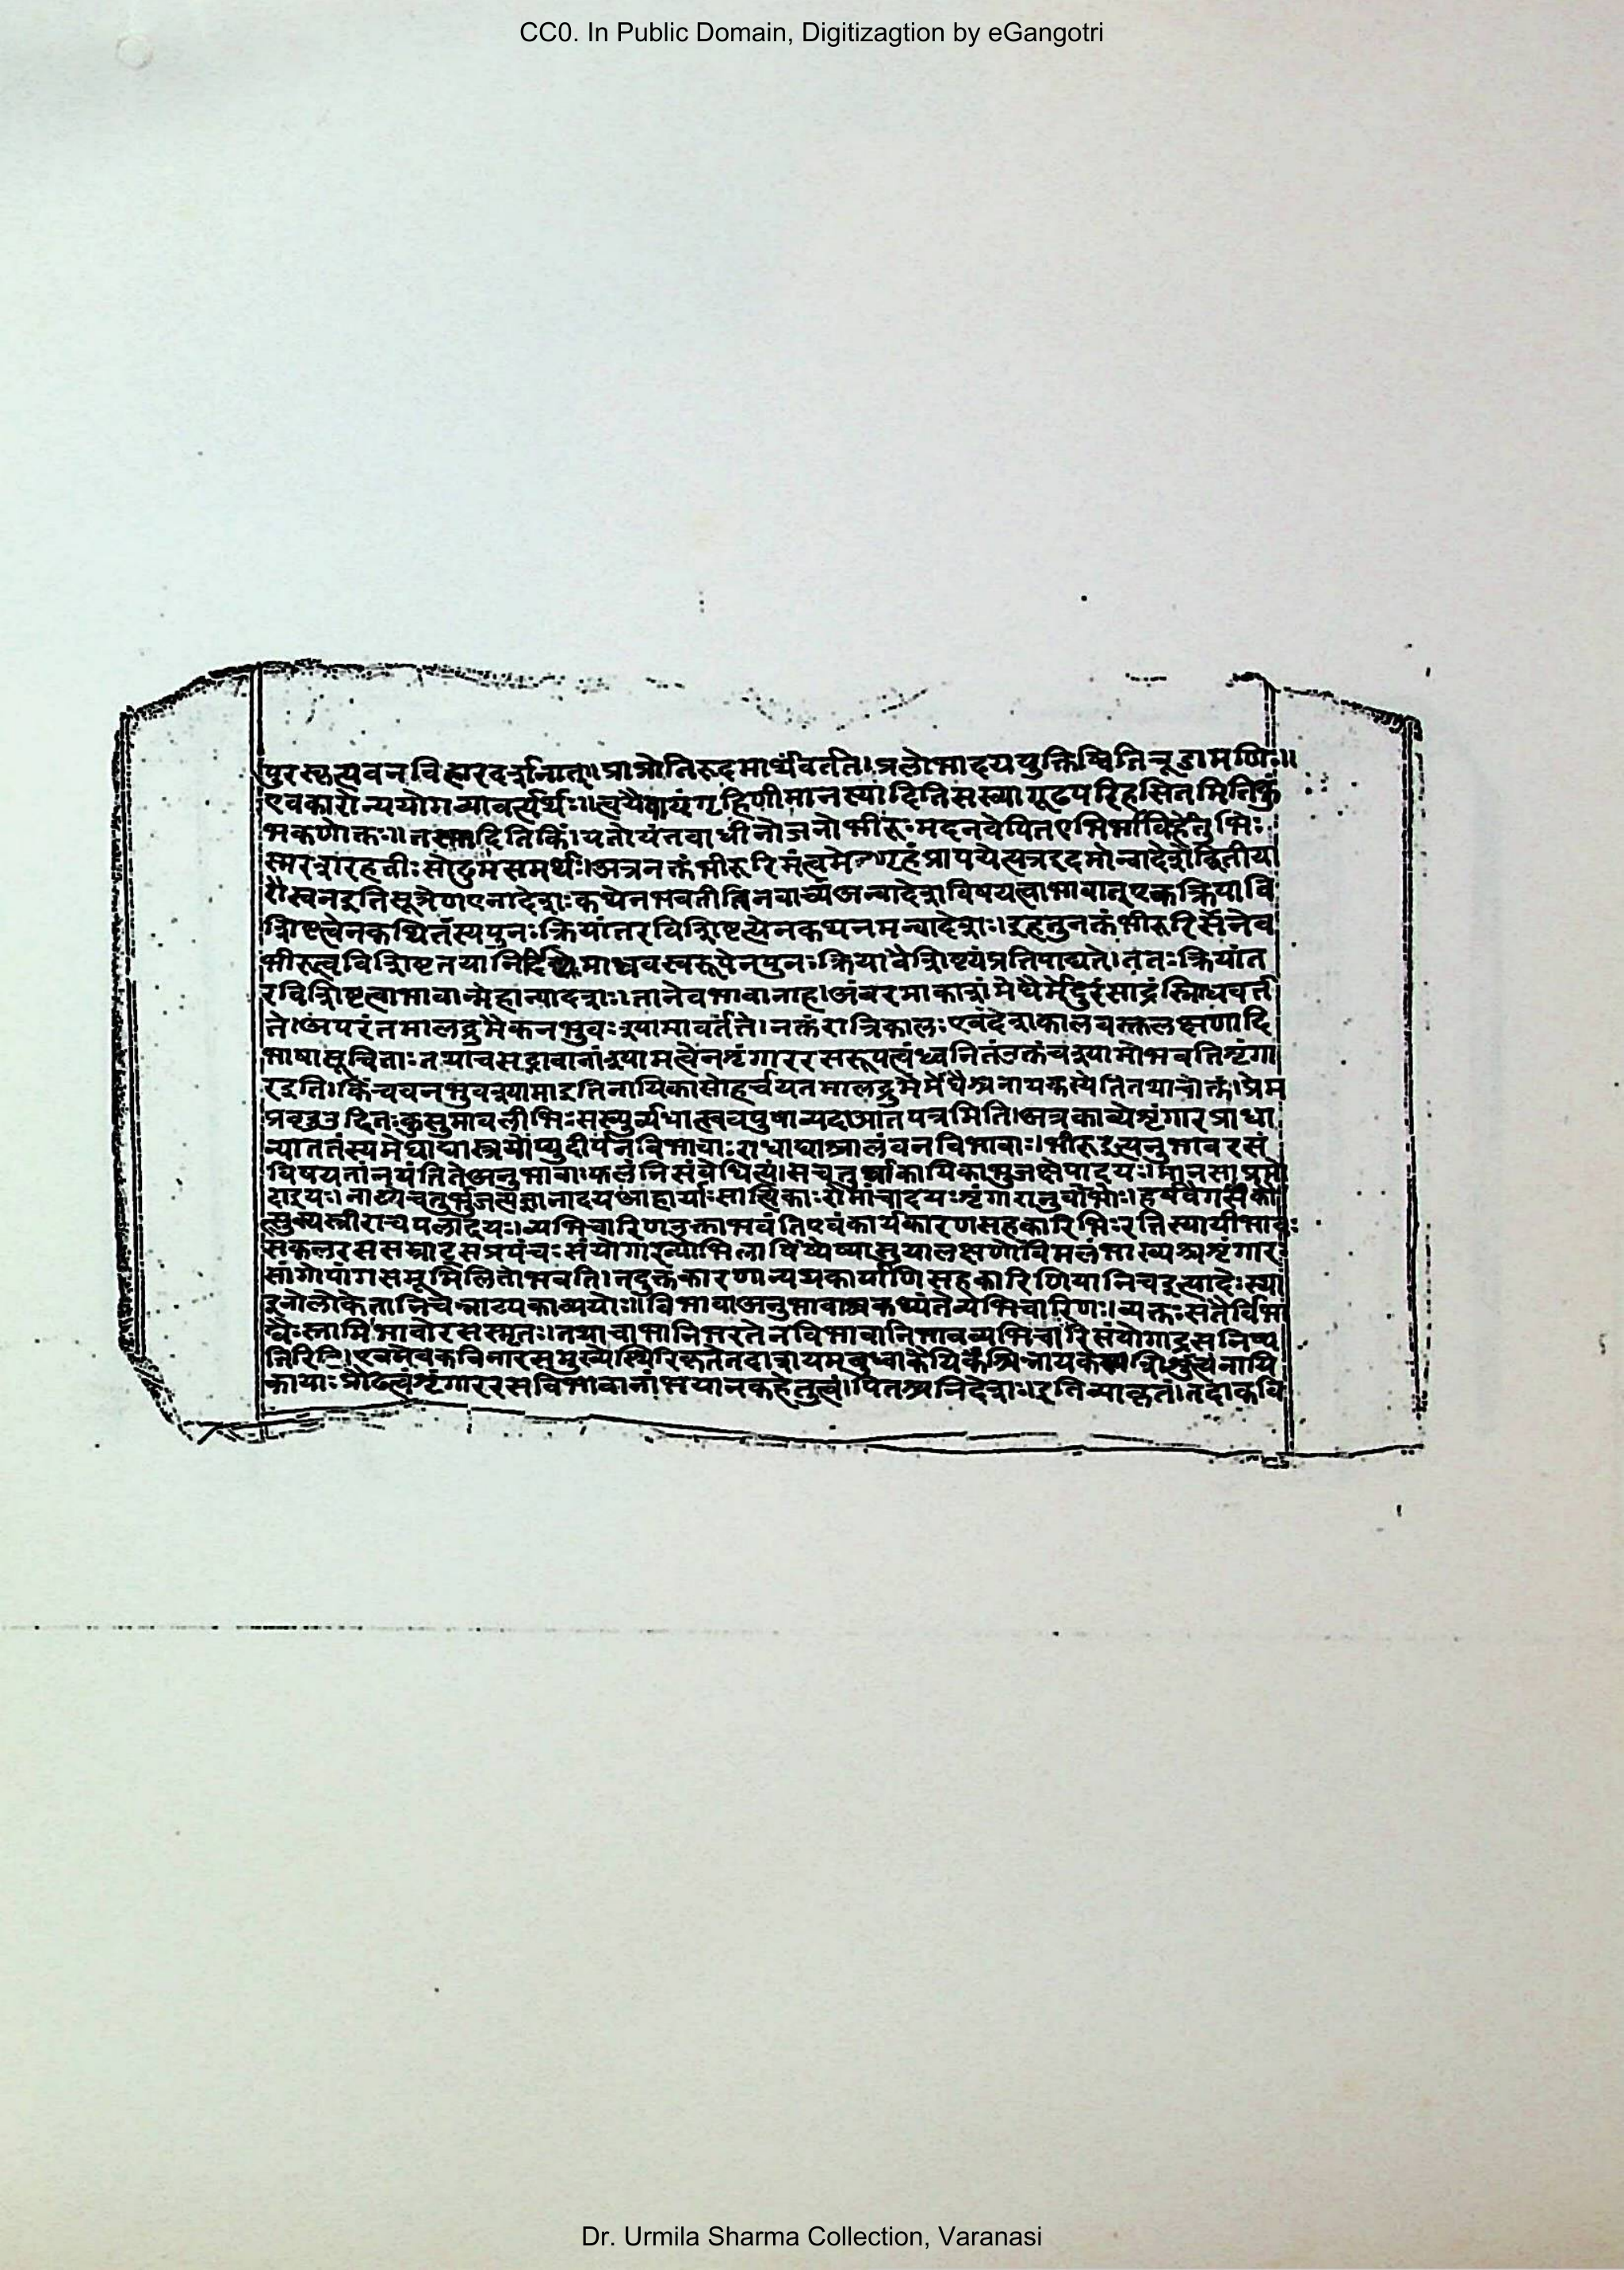 CC0. In Public Domain, Digitizagtion by eGangotri
पुरस्कृत्यवनविहारदर्शनात्॥प्राप्नोतिरूदमार्थंवर्तते।प्रलोभादयपुक्तिष्वितिचूडामणिः॥
एवकारोन्ययोगव्यावर्त्यर्थः॥त्वयैवायंगृहिणीमानस्यादितिसख्यागूढपरिहसितमितिकुं
भकर्णोक्तः॥तस्मादितिकिं।यतोयंतवाधीनोजनोभीरुःमदनवेपितएभिर्भाविहेतुभिः
स्मरशरहवीःसोढुमसमर्थः।अत्रनक्तंभीरूरिमंत्वमेवगृहंप्रापयेत्यत्रइदमोन्वादेशेद्वितीया
टौस्वेनइतिसूत्रेणएनादेशःकथंनभवतीतिनवाच्यंअन्वादेशविषयत्वाभावात्एकक्रियावि
शिष्टत्वेनकथितस्यपुनःक्रियांतरविशिष्टत्वेनकथनमन्वादेशः।इहतुनक्तंभीरूरिसनेव
भीरूत्वविशिष्टतयानिर्दिष्ट माधवस्वरूपेनपुनःक्रियावैशिष्ट्यंप्रतिपाद्यते।ततःक्रियांत
रविशिष्टत्वाभावान्मेहान्यादेशः।तानेवभावानाह।अंबरमाकाशंमेघैर्मेदुरंसांद्रंस्निग्धवर्त
ते।अपरंतमालद्रुमैकनभुवःश्यामावर्तते।नक्तंरात्रिकालःएवंदेशकालवस्तलक्षणादि
भाषासूचिताःतथाचसद्भावानांश्यामत्वेनशृंगाररसरूपत्वंध्वनितंउक्तंचश्यामोभवतिशृंगा
रइति।किंचवनभुवश्यामाइतिनायिकासोहर्चयतमालद्रुमैर्मेघैश्चनायकस्येतितथाचोक्तं।प्रेम
प्रवृद्धउदितःकुसुमावलीभिःसख्युर्व्यधात्स्ववपुषाव्यदाआतपत्रमिति।अत्रकाव्येशृंगारप्राधा
न्याततस्यमेघाद्यास्त्रयोप्युदीपनविभावाःराधाद्याआलंबनविभावाः।भीरूइत्यनुभावरसं
विषयतांनयंतितेअनुभावा।फलंनिसंबंधित्वं।सचतुर्धाकायिकाभुजक्षेपादयः।मानसाप्रमो
दादयः।नाट्येचतुर्भुजत्वज्ञानादयआहार्याःसात्विकाःरोमांचादयःशृंगारानुयोभाः।हर्षवेगसीका
त्सुक्यस्त्रीराचपलादयः।व्यभिचारिणउक्ताभवंतिएवंकार्यकारणसहकारिभिःरतिस्थायीभावः
सकलरससम्राट्सप्रपंचःसंयोगाख्योभिलाषिर्ष्येष्यासूयालक्षणोविमलंभाख्यश्चशृंगारः
सांगोपांगसमूमिलितोभवति।तदुक्तंकारणान्यथकार्याणिसहकारिणियानिचइत्यादेःस्था
इनोलोकेतानिचेन्नाट्यकाव्ययोः॥विभावाअनुभावाश्चकथ्यंतेव्यभिचारिणः।व्यक्तःसतैर्विभा
वैःस्तामिभावोरसस्मृतः।तथाचाभानिभरतेनविभावानिभावव्यभिचारिसंयोगाद्रसनिष्प
त्तिरिति। 
कायाःप्रौढत्वंशृंगाररसविभावानांभयानकहेतुत्वं।पितश्चनिदेशः।इतिव्याकृतं।तदाकवि
Dr. Urmila Sharma Collection, Varanasi